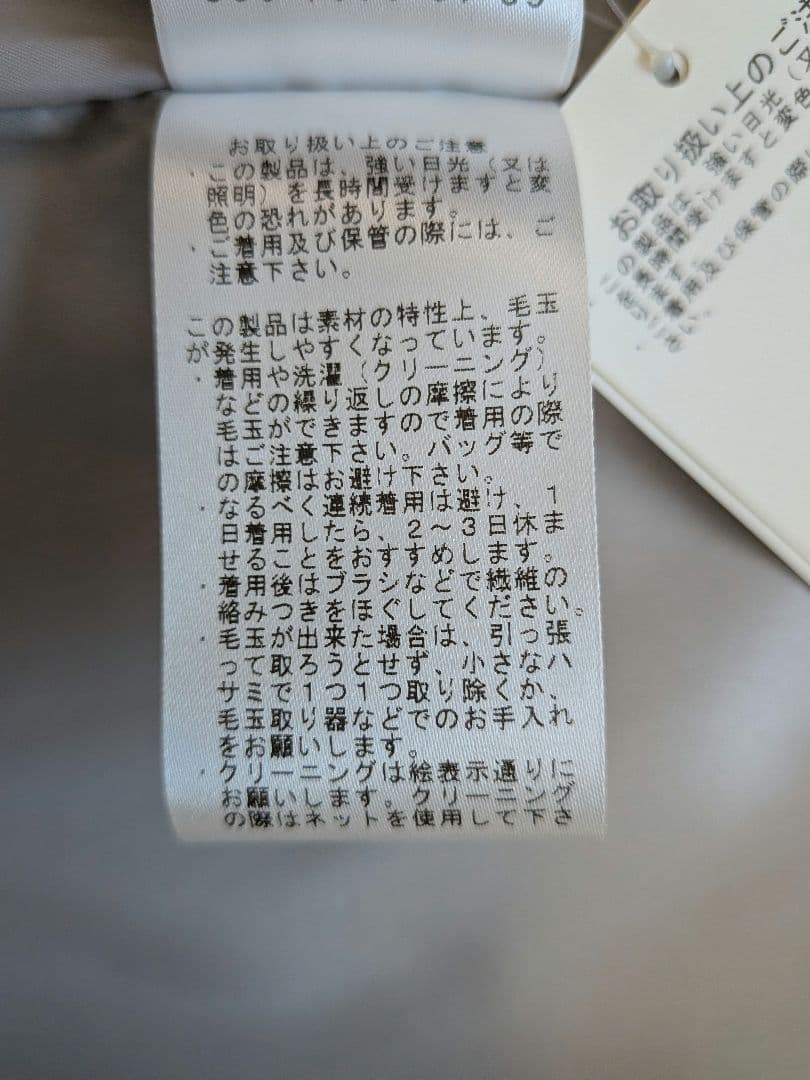 お取り扱い上のご注意
・この製品は、強い日光（又は
照明）を長時間受けますと変
色の恐れがあります。
・ご着用及び保管の際には、ご
注意下さい。
この製品は素材の特性上、毛玉
が発生しやすくなっています。
・着用や洗濯（クリーニング）
などの繰り返しの摩擦により
毛玉ができますので着用の際
はご注意下さい。バッグ等で
の摩擦はお避け下さい。
・なるべく連続着用は避け、1
日着用したら、2～3日休ま
せることをおすすめします。
・着用後はブラシなどで繊維の
絡みつきをほぐしてください。
・毛玉が出来た場合は、引っ張
って取ろうとせず、小さなハ
サミで1つ1つ取り除くか、
毛玉取り器などでのお手入れ
をお願いします。
・クリーニングは絵表示通りに
お願いします。クリーニング
の際はネットを使用して下さ
お取り扱い上のご
の製品は、強い日光
長時間受けますと変色
ます。
着用及び保管の際